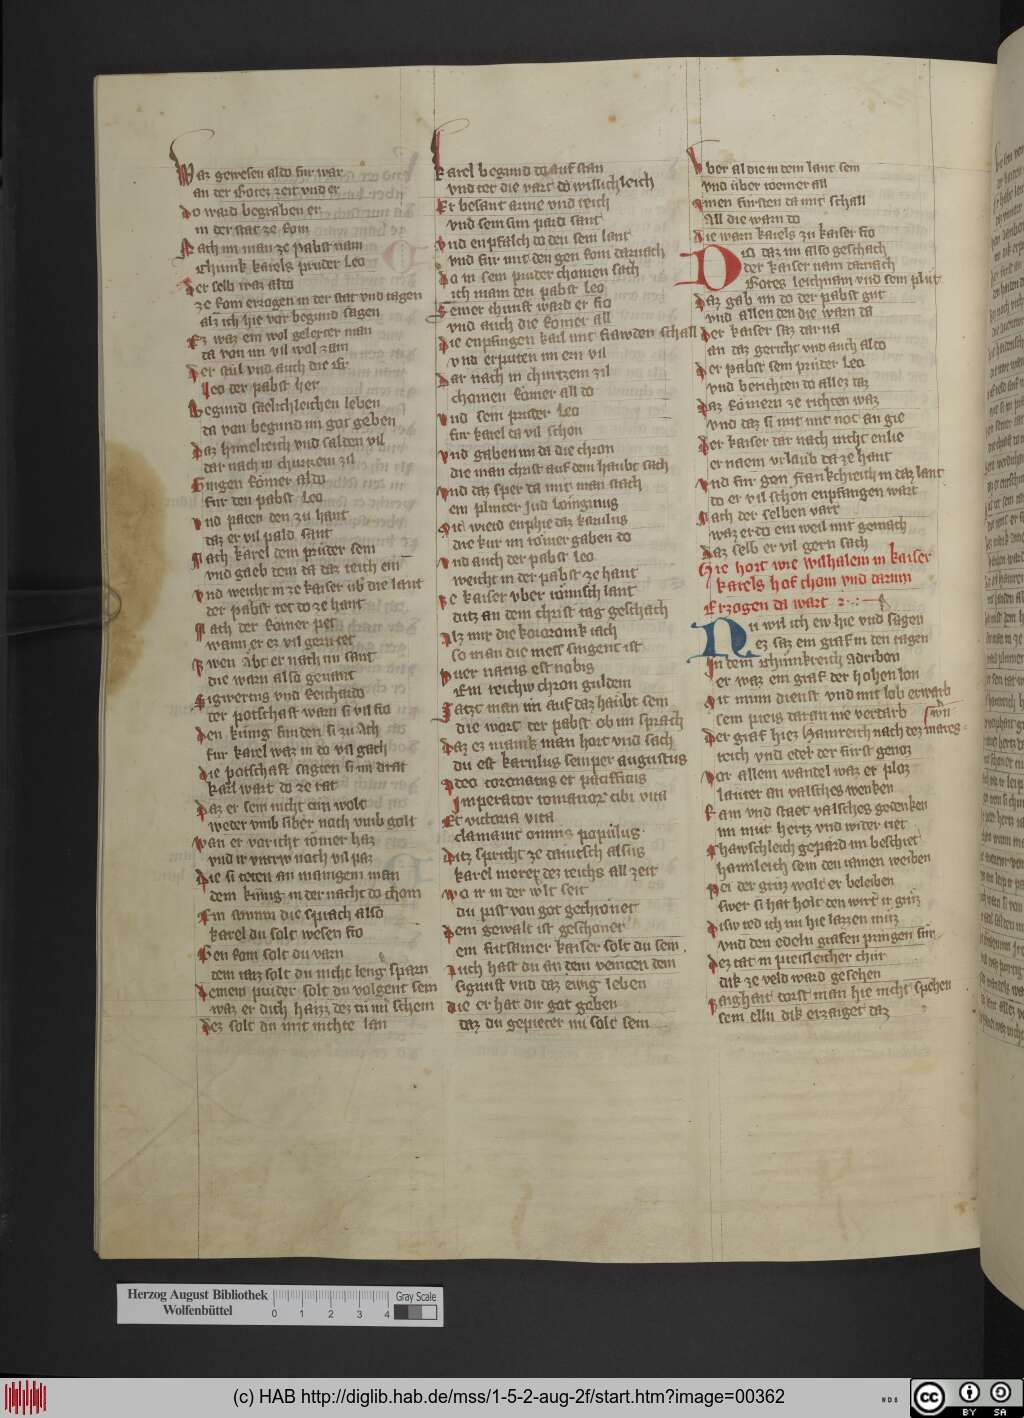 Waz gewesen aldo fur war
an der Gotez zeit vnd er
Do ward begraben er
in der stat ze Rom
Nach im man ze pabst nam
chunik karels pruder Leo
Der selb waz aldo
ze Rom erzogen in der stat vnd tagen
alz ich hie vor begund sagen
Ez waz ein wol gelerter man
da von im vil wol zam
Leo der pabst her
Begund saelichleichen leben
da von begund im got geben
Daz himelreich vnd salden vil
dar nach in churtzem zil
Gingen Romer aldo
fur den pabst Leo
vnd paten den zu hant
daz er vil pald sant
Nach karel dem pruder sein
vnd gaeb dem da daz reich ein
vnd weicht in ze kaiser vb die lant
der pabst tet do ze hant
Nach der Romer pet
wann er ez vil gern tet
die warn also genant
der potschaft warn si vil fro
Den kunig funden si zu Ach
fur karel waz in do vil gach
Die potschaft sagten si im drat
karl wart do ze rat
Daz er sein nicht tun wolt
weder vmb silber noch vmb golt
wan er voricht romer haz
vnd ir vntrew nach vil paz
Die si teten an manigem man
dem kunig in der nacht do chom
Ein stimm die sprach also
karel du solt wesen fro
Gen Rom solt du varn
dein varz solt du nicht leng sparn
Deinem pruder solt du volgent sein
waz er dich haizz dez tu im schein
Dez solt du mit nichte lan
karel begund do auf stan
vnd ter die vart do willichleich
Er besant arme vnd reich
vnd sein sun pald sant
vnd enpfalch do den sein lant
vnd fur mit den gen Rom darnach
Do in sein pruder chomen sach
ich main den pabst Leo
Seiner chunft ward er fro
vnd auch die Romer all
Die enpfingen karl mit frawden schall
vnd erputen im ern vil
Dar nach in churtzem zil
chomen Romer all do
vnd sein pruder Leo
fur karel da vil schon
vnd gaben im da die chron
die man christ auf dem haubt sach
vnd daz sper da mit man stach
ein plinter jud Longinus
die kur im romer gaben do
vnd auch der pabst Leo
weicht in der pabst ze hant
Ze kaiser vber romisch lant
ditz an dem christ tag geschach
Alz mir die koronik iach
so man die mess singent ist
puer natus est nobis
Ein reichw chron guldein
Satzt man im auf daz haubt sein
die wort der pabst ob im sprach
Daz ez manik man hort vnd sach
du est karulus semper augustus
A deo coronatus et pacificus
Imperator romanor tibi vita
Et victoria vita
clamant omnis populus
Ditz spricht ze dautsch alsus
karel merer dez reichs all zeit
wo ir in der welt seit
du pist von got gechronet
Dein gewalt ist geschonet
ein fritsamer kaiser solt du sein
Auch hast du an dem veinten dein
sigunft vnd daz ewig leben
die er hat dir got geben
daz du gepieter im solt sein
vber al die in dem lant sein
vnd uber roemer all
Einen fursten da mit schall
All die warn do
Die warn karels zu kaiser fro
Do daz nu also geschach
der kaiser nam darnach
Gotes leichnam vnd sein plut
Daz gab im do der pabst gut
vnd allen den die warn da
Der kaiser saz dar na
an daz gericht vnd auch aldo
Der pabst sein pruder Leo
vnd berichten do allez daz
Daz Romern ze richten waz
vnd daz si mit mit not an gie
Der kaiser dar nach nicht enlie
er naem vrlaub da ze hant
vnd fur gen frankchreich in daz lant
do er vil schon enpfangen wart
Nach der selben vart
waz er do ein weil mit gemach
Daz selb er vil gern sach
Hie hort wie wilhalem in kaiser
karels hof chom vnd darinn
Erzogen da wart
Nu wil ich ew hie vnd sagen
ez saz ein graf in den tagen
In dem chunkreich Adribon
er waz ein graf der hohen lon
Mit minn dienst vnd mit lob erwarb
sein preis daran nie verdarb
Der graf hiez Hainreich nach dez mares
reich vnd edel der furst genoz
vor allem wandel waz er ploz
lauter an valsches wenken
Rain vnd staet valsches gedenken
im mut hertz vnd wider riet
chawschleich gepard im beschiet
hainleich sein den rainen weiben
Pei der gruz wolt er beleiben
swer si hat holt den wirt ir gruz
Disw red ich im hie lazzen muz
vnd den edeln grafen pringen fur
Dez tat in preisleicher chur
dik ze veld ward gesehen
Zaghait torst man hie nicht spehen
sein elln dik erzaiget daz
Herzog August Bibliothek
Wolfenbüttel
0 1 2 3 4
Gray Scale
(c) HAB http://diglib.hab.de/mss/1-5-2-aug-2f/start.htm?image=00362
WDB
cc
BY SA